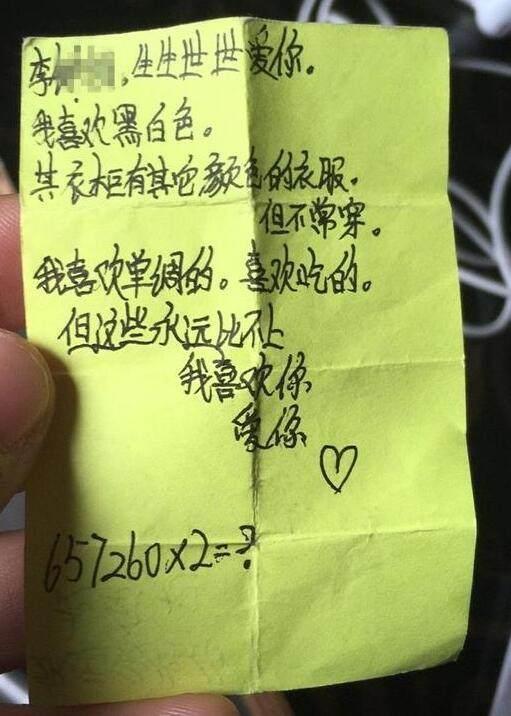 李，生生世世爱你。
我喜欢黑白色。
其衣柜有其它颜色的衣服。
但不常穿。
我喜欢单绸的。喜欢吃的。
但这些永远比不上
我喜欢你
爱你
657260×2=?